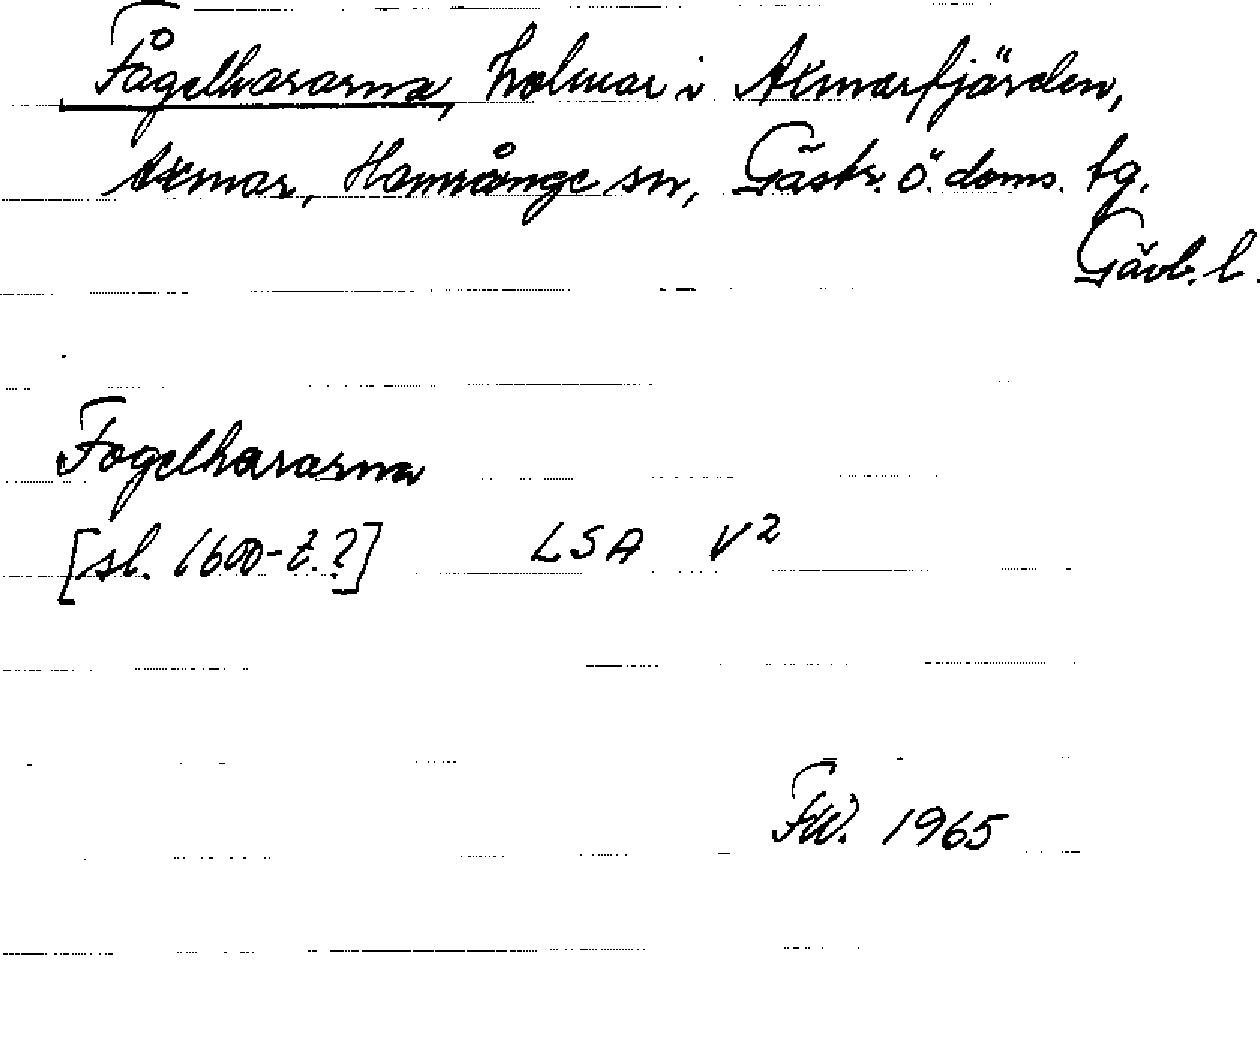 Fågelhararna, holmar i Axmarfjärden,
Axmar, Hamrånge sn, Gästr. ö. doms. tg.
Gävl. l.
Fogelhararna
[sl. 1600-t.?] LSA V2
FW. 1965